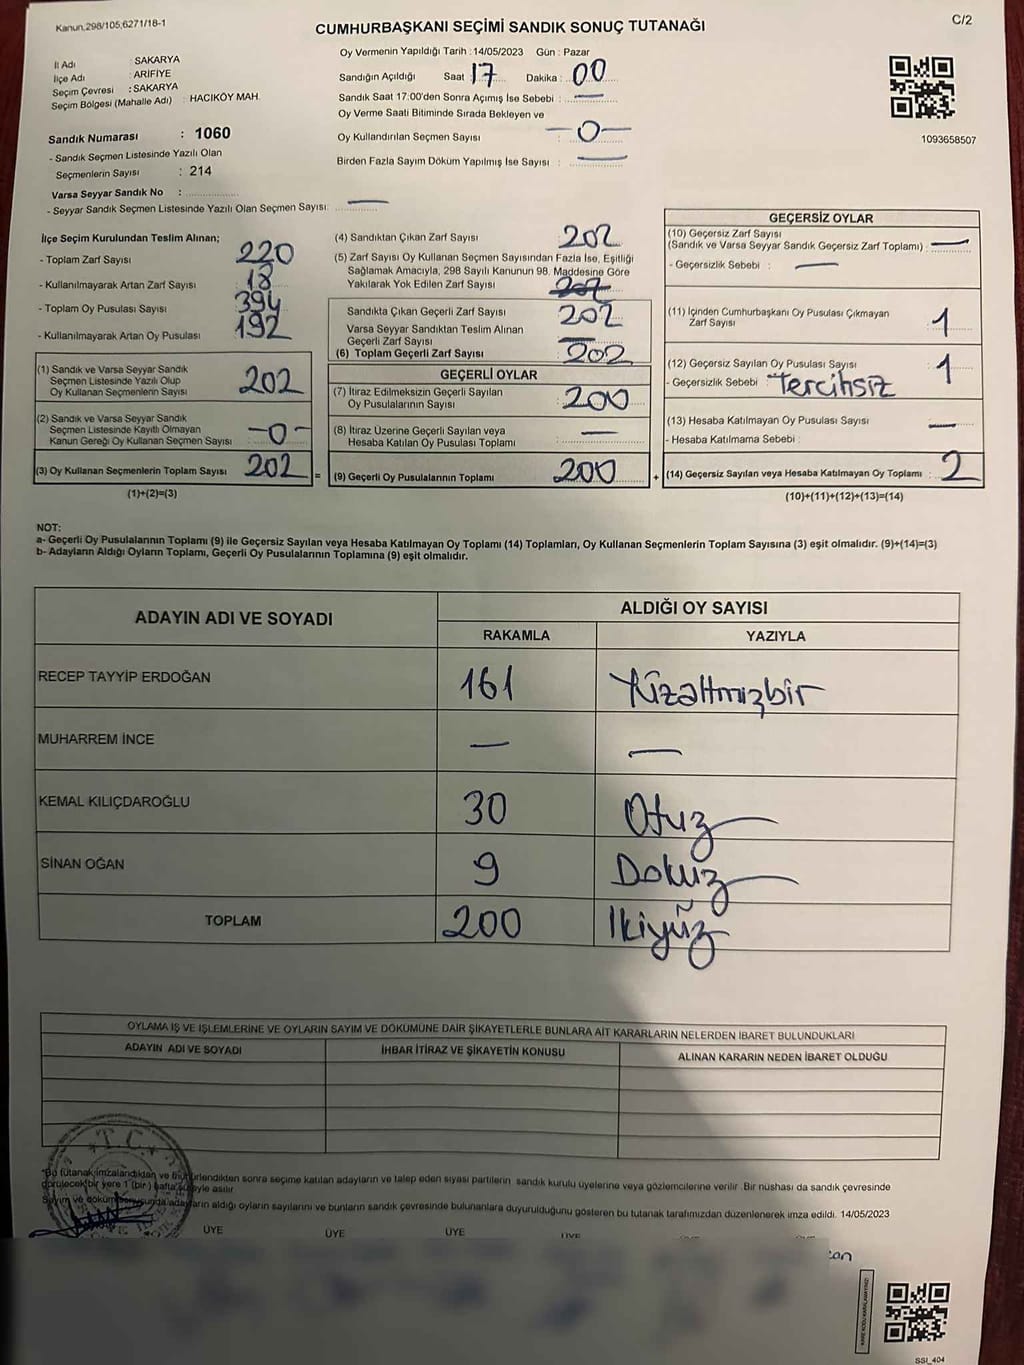 Kanun,298/105,6271/18-1
C/2
CUMHURBAŞKANI SEÇİMİ SANDIK SONUÇ TUTANAĞI
Oy Vermenin Yapıldığı Tarih : 14/05/2023 Gün : Pazar
İl Adı : SAKARYA
İlçe Adı : ARİFİYE
Seçim Çevresi : SAKARYA
Seçim Bölgesi (Mahalle Adı) : HACIKÖY MAH.
Sandığın Açıldığı Saat 17 Dakika : 00
Sandık Saat 17:00'den Sonra Açımış İse Sebebi : —
Oy Verme Saati Bitiminde Sırada Bekleyen ve
Oy Kullandırılan Seçmen Sayısı : —0—
Birden Fazla Sayım Döküm Yapılmış İse Sayısı : —
1093658507
Sandık Numarası : 1060
- Sandık Seçmen Listesinde Yazılı Olan
Seçmenlerin Sayısı : 214
Varsa Seyyar Sandık No :
- Seyyar Sandık Seçmen Listesinde Yazılı Olan Seçmen Sayısı: —
İlçe Seçim Kurulundan Teslim Alınan;
- Toplam Zarf Sayısı 220
- Kullanılmayarak Artan Zarf Sayısı 18
- Toplam Oy Pusulası Sayısı 394
- Kullanılmayarak Artan Oy Pusulası 192
(1) Sandık ve Varsa Seyyar Sandık
Seçmen Listesinde Yazılı Olup
Oy Kullanan Seçmenlerin Sayısı 202
(2) Sandık ve Varsa Seyyar Sandık
Seçmen Listesinde Kayıtlı Olmayan
Kanun Gereği Oy Kullanan Seçmen Sayısı -0-
(3) Oy Kullanan Seçmenlerin Toplam Sayısı 202 =
(1)+(2)=(3)
(4) Sandıktan Çıkan Zarf Sayısı 202
(5) Zarf Sayısı Oy Kullanan Seçmen Sayısından Fazla İse, Eşitliği
Sağlamak Amacıyla, 298 Sayılı Kanunun 98. Maddesine Göre
Yakılarak Yok Edilen Zarf Sayısı
Sandıkta Çıkan Geçerli Zarf Sayısı 202
Varsa Seyyar Sandıktan Teslim Alınan
Geçerli Zarf Sayısı —
(6) Toplam Geçerli Zarf Sayısı 202
GEÇERLİ OYLAR
(7) İtiraz Edilmeksizin Geçerli Sayılan
Oy Pusulalarının Sayısı 200
(8) İtiraz Üzerine Geçerli Sayılan veya
Hesaba Katılan Oy Pusulası Toplamı —
(9) Geçerli Oy Pusulalarının Toplamı 200 +
GEÇERSİZ OYLAR
(10) Geçersiz Zarf Sayısı
(Sandık ve Varsa Seyyar Sandık Geçersiz Zarf Toplamı) : —
- Geçersizlik Sebebi : —
(11) İçinden Cumhurbaşkanı Oy Pusulası Çıkmayan
Zarf Sayısı 1
(12) Geçersiz Sayılan Oy Pusulası Sayısı 1
- Geçersizlik Sebebi : Tercihsiz
(13) Hesaba Katılmayan Oy Pusulası Sayısı —
- Hesaba Katılmama Sebebi :
(14) Geçersiz Sayılan veya Hesaba Katılmayan Oy Toplamı : 2
(10)+(11)+(12)+(13)=(14)
NOT:
a- Geçerli Oy Pusulalarının Toplamı (9) ile Geçersiz Sayılan veya Hesaba Katılmayan Oy Toplamı (14) Toplamları, Oy Kullanan Seçmenlerin Toplam Sayısına (3) eşit olmalıdır. (9)+(14)=(3)
b- Adayların Aldığı Oyların Toplamı, Geçerli Oy Pusulalarının Toplamına (9) eşit olmalıdır.
ADAYIN ADI VE SOYADI
ALDIĞI OY SAYISI
RAKAMLA YAZIYLA
RECEP TAYYİP ERDOĞAN 161 Yüzaltmışbir
MUHARREM İNCE — —
KEMAL KILIÇDAROĞLU 30 Otuz
SİNAN OĞAN 9 Dokuz
TOPLAM 200 İkiyüz
OYLAMA İŞ VE İŞLEMLERİNE VE OYLARIN SAYIM VE DÖKÜMÜNE DAİR ŞİKAYETLERLE BUNLARA AİT KARARLARIN NELERDEN İBARET BULUNDUKLARI
ADAYIN ADI VE SOYADI İHBAR İTİRAZ VE ŞİKAYETİN KONUSU ALINAN KARARIN NEDEN İBARET OLDUĞU
T.C.
*Bu tutanak imzalandıktan ve mühürlendikten sonra seçime katılan adayların ve talep eden siyasi partilerin sandık kurulu üyelerine veya gözlemcilerine verilir. Bir nüshası da sandık çevresinde
görülecek bir yere 1 (bir) hafta süreyle asılır.
Sayım ve döküm sonucunda adayların aldığı oyların sayılarını ve bunların sandık çevresinde bulunanlara duyurulduğunu gösteren bu tutanak tarafımızdan düzenlenerek imza edildi. 14/05/2023
ÜYE ÜYE ÜYE ÜYE
SSİ_404